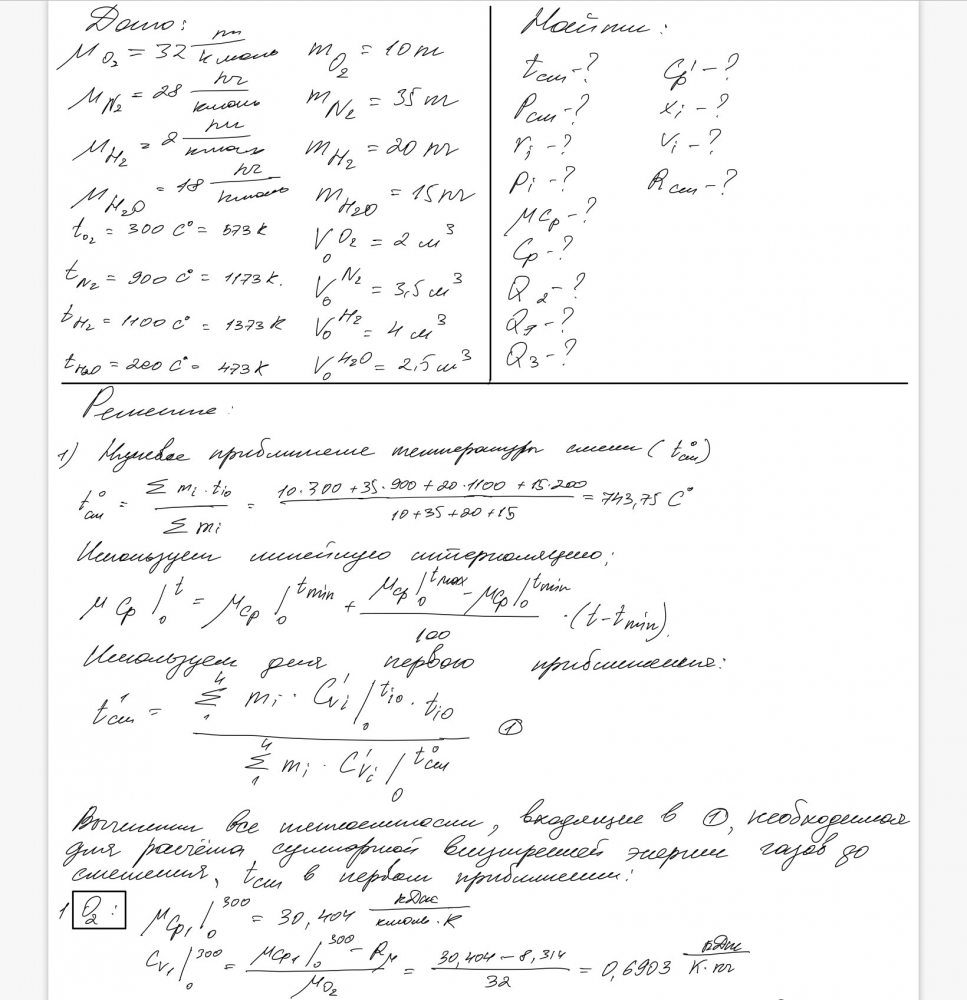 Дано:
μ O₂ = 32 кг/кмоль m O₂ = 10 кг
μ N₂ = 28 кг/кмоль m N₂ = 35 кг
μ H₂ = 2 кг/кмоль m H₂ = 20 кг
μ H₂O = 18 кг/кмоль m H₂O = 15 кг
t O₂ = 300 C° = 573 K V₀ O₂ = 2 м³
t N₂ = 900 C° = 1173 K. V₀ N₂ = 3,5 м³
t H₂ = 1100 C° = 1373 K V₀ H₂ = 4 м³
t H₂O = 200 C° = 473 K V₀ H₂O = 2,5 м³
Найти:
tсм - ? Cp' - ?
Pсм - ? xi - ?
ri - ? Vi - ?
Pi - ? Rсм - ?
μCp - ?
Cp - ?
Q2 - ?
Q1 - ?
Q3 - ?
Решение:
1) Нулевое приближение температуры смеси (t°см)
t°см = Σ mi · ti0 / Σ mi = (10·300 + 35·900 + 20·1100 + 15·200) / (10+35+20+15) = 743,75 C°
Используем линейную интерполяцию:
μCp|₀^t = μCp|₀^tmin + (μCp|₀^tmax − μCp|₀^tmin) / 100 · (t − tmin).
Используем для первого приближения:
t¹см = Σ₁⁴ mi · C'vi|₀^ti0 · ti0 / Σ₁⁴ mi · C'vi|₀^t°см ①
Вычислим все теплоемкости, входящие в ①, необходимая
для расчёта суммарной внутренней энергии газов до
смешения, tсм в первом приближении:
1 O₂: μCp₁|₀^300 = 30,404 кДж/кмоль·K
Cv₁|₀^300 = (μCp₁|₀^300 − Rμ) / μO₂ = (30,404 − 8,314) / 32 = 0,6903 кДж/K·кг